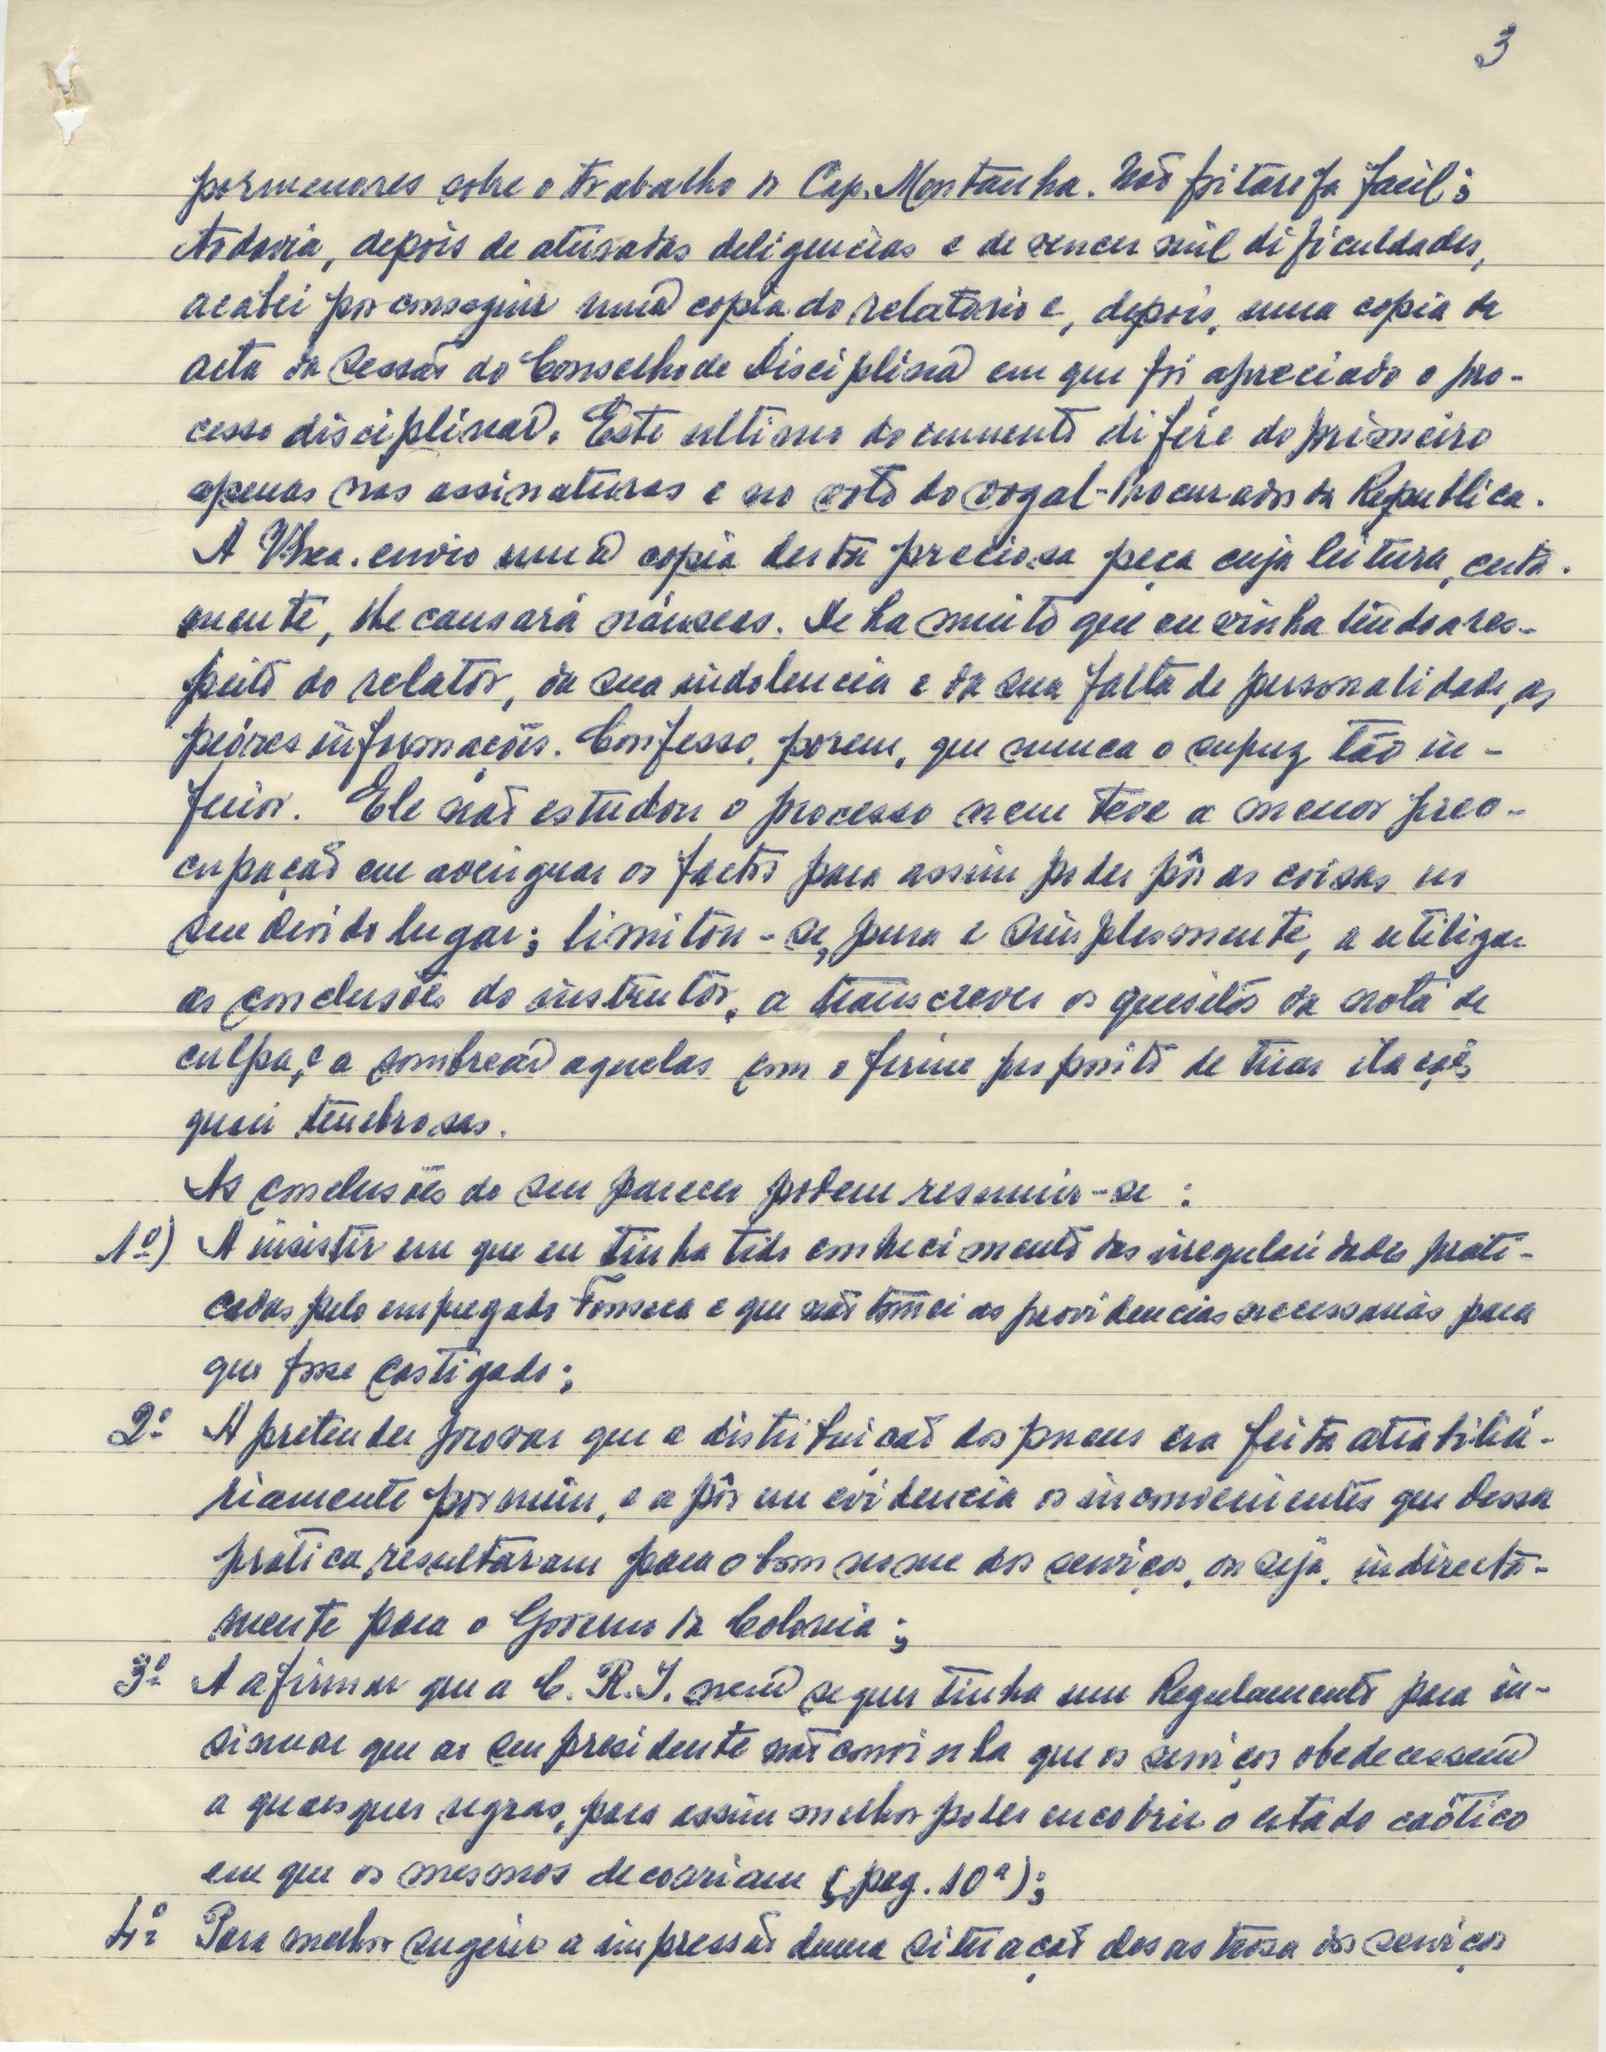 3
pormenores sobre o trabalho do Cap. Montanha. Não foi tarefa facil;
todavia, depois de aturadas deligencias e de vencer mil dificuldades,
acabei por conseguir uma copia do relatorio e, depois, uma copia da
acta da Sessão do Conselho de Disciplina em que foi apreciado o pro-
cesso disciplinar. Este ultimo documento difére do primeiro
apenas nas assinaturas e no voto do vogal-Procurador da Republica.
A V. Exa. envio uma copia desta preciosa peça cuja leitura, certa-
mente, lhe causará náuseas. De ha muito que eu vinha tendo a res-
peito do relator, da sua indolencia e da sua falta de personalidade, as
peóres informações. Confesso, porem, que nunca o supuz tão in-
ferior. Ele não estudou o processo nem teve a menor preo-
cupação em averiguar os factos para assim poder pôr as coisas no
seu devido lugar; limitou-se, pura e simplesmente, a utilizar
as conclusões do instrutor, a transcrever os quesitos da nota de
culpa, e a sombrear aquelas com o firme proposito de tirar ilações
quasi tenebrosas.
As conclusões do seu parecer podem resumir-se:
1º) A insistir em que eu tinha tido conhecimento das irregularidades prati-
cadas pelo empregado Fonseca e que não tomei as providencias necessarias para
que fosse castigado;
2º A pretender provar que a distribuição dos pneus era feita atrabiliá-
riamente por mim, e a pôr em evidencia os inconvenientes que dessa
pratica resultaram para o bom nome dos serviços, ou seja, indirecta-
mente para o Governo da Colonia;
3º A afirmar que a C. R. I. nem sequer tinha um Regulamento para in-
sinuar que ao seu presidente não convinha que os serviços obedecessem
a quaesquer regras, para assim melhor poder encobrir o estado caótico
em que os mesmos decorriam (pag. 10ª);
4º Para melhor sugerir a impressão duma situação desastrosa dos serviços